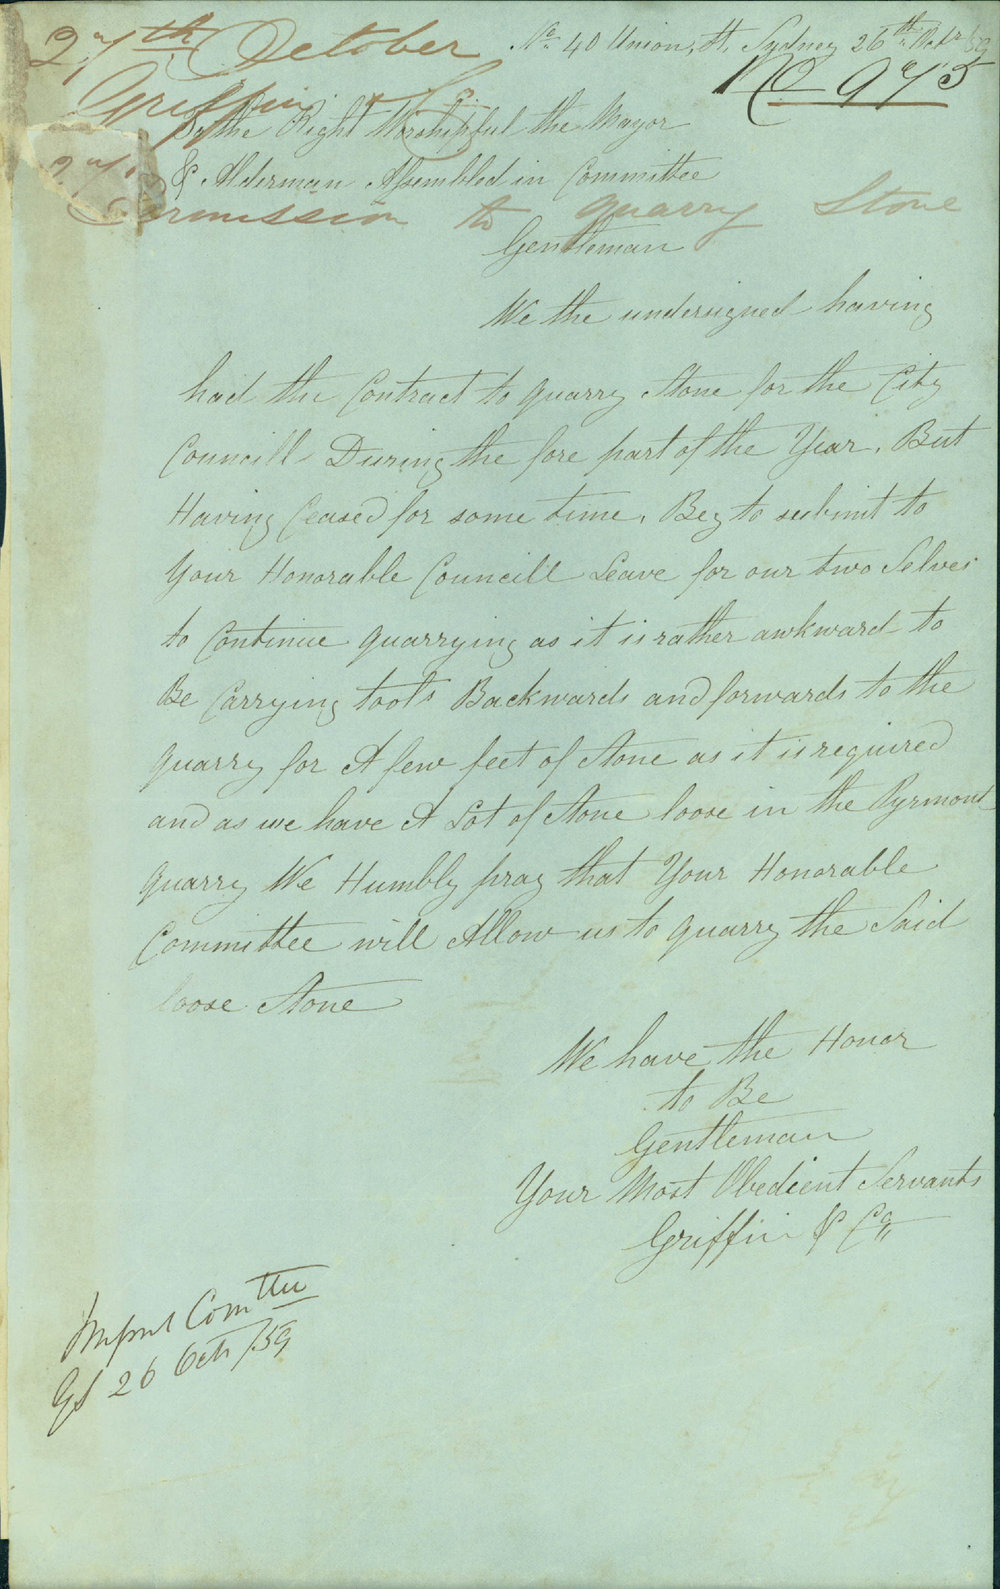 27th October
No 40 Union, St, Sydney 26th Octr /59
No 975
Griffin & Co
To the Right Worshipful the Mayor
27
& Alderman Assembled in Committee
Permission to quarry Stone
Gentleman
We the undersigned having
had the Contract to quarry Stone for the City
Councill During the fore part of the Year, But
Having Ceased for some time, Beg to submit to
Your Honorable Councill Leave for our two Selves
to Continue quarrying as it is rather awkward to
Be Carrying tools Backwards and forwards to the
quarry for A few feet of Stone as it is required
and as we have A Lot of Stone loose in the Pyrmont
quarry We Humbly pray that Your Honorable
Committee will Allow us to quarry the Said
loose Stone
We have the Honor
to Be
Gentleman
Your Most Obedient Servants
Griffin & Co
Impvt Comttee
26 Oct /59